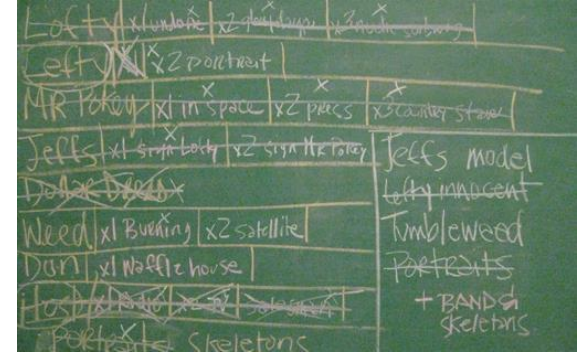 Lofty x1 undone x2 x3
Lefty x2 portrait
MR Pokey x1 in space x2 press x3 counter
Jeffs x1 sign Lofty x2 sign MR Pokey
Weed x1 Burning x2 satellite
Dan x1 Waffle house
Portraits Skeletons
Jeffs model
Lefty innocent
Tumbleweed
PORTRAITS
+ BANDS
skeletons